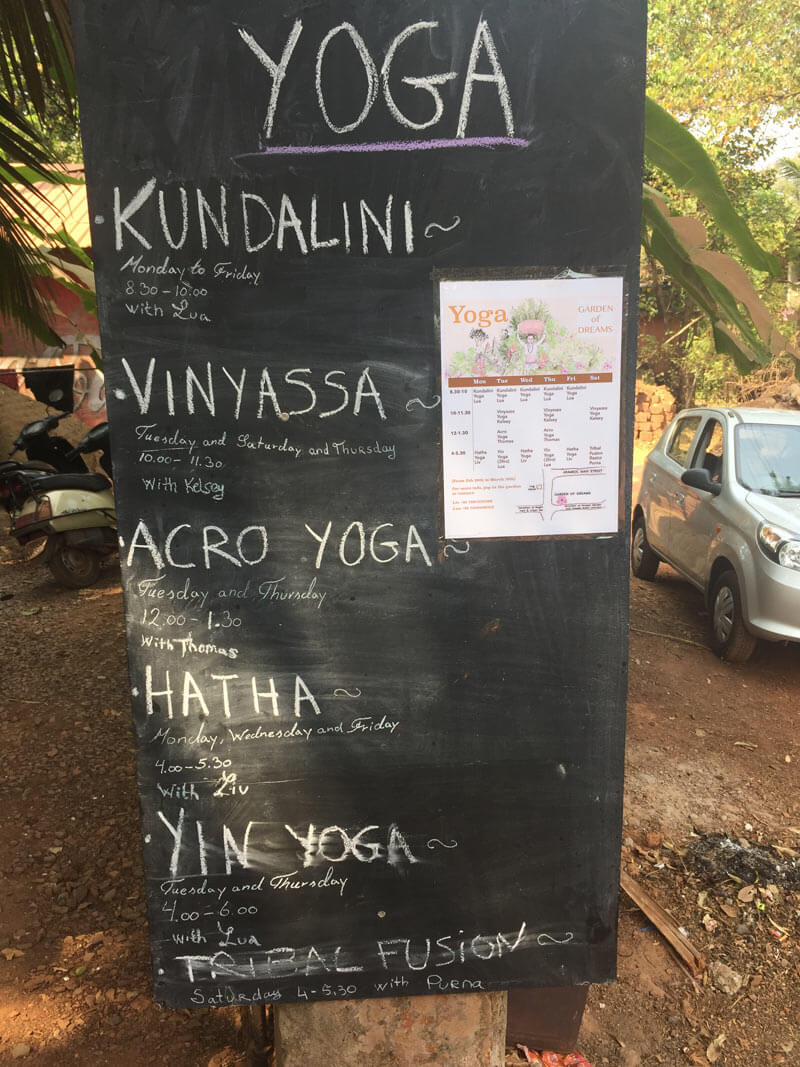 YOGA
• KUNDALINI ~
Monday to Friday
8.30 - 10.00
with Lua
• VINYASSA ~
Tuesday and Saturday and Thursday
10.00 - 11.30
With Kelsey
• ACRO YOGA ~
Tuesday and Thursday
12.00 - 1.30
With Thomas
• HATHA ~
Monday, Wednesday and Friday
4.00 - 5.30
With Liv
• YIN YOGA ~
Tuesday and Thursday
4.00 - 6.00
with Lua
• TRIBAL FUSION ~
Saturday 4 - 5.30 with PURNA
Yoga
GARDEN
of
DREAMS
Mon Tue Wed Thu Fri Sat
8.30-10 Kundalini Yoga Lua Kundalini Yoga Lua Kundalini Yoga Lua Kundalini Yoga Lua Kundalini Yoga Lua
10-11.30 Vinyasa Yoga Kelsey Vinyasa Yoga Kelsey Vinyasa Yoga Kelsey
12-1.30 Acro Yoga Thomas Acro Yoga Thomas
4-5.30 Hatha Yoga Liv Yin Yoga (2hrs) Lua Hatha Yoga Liv Yin Yoga (2hrs) Lua Hatha Yoga Liv Tribal Fusion Purna
GARDEN OF DREAMS